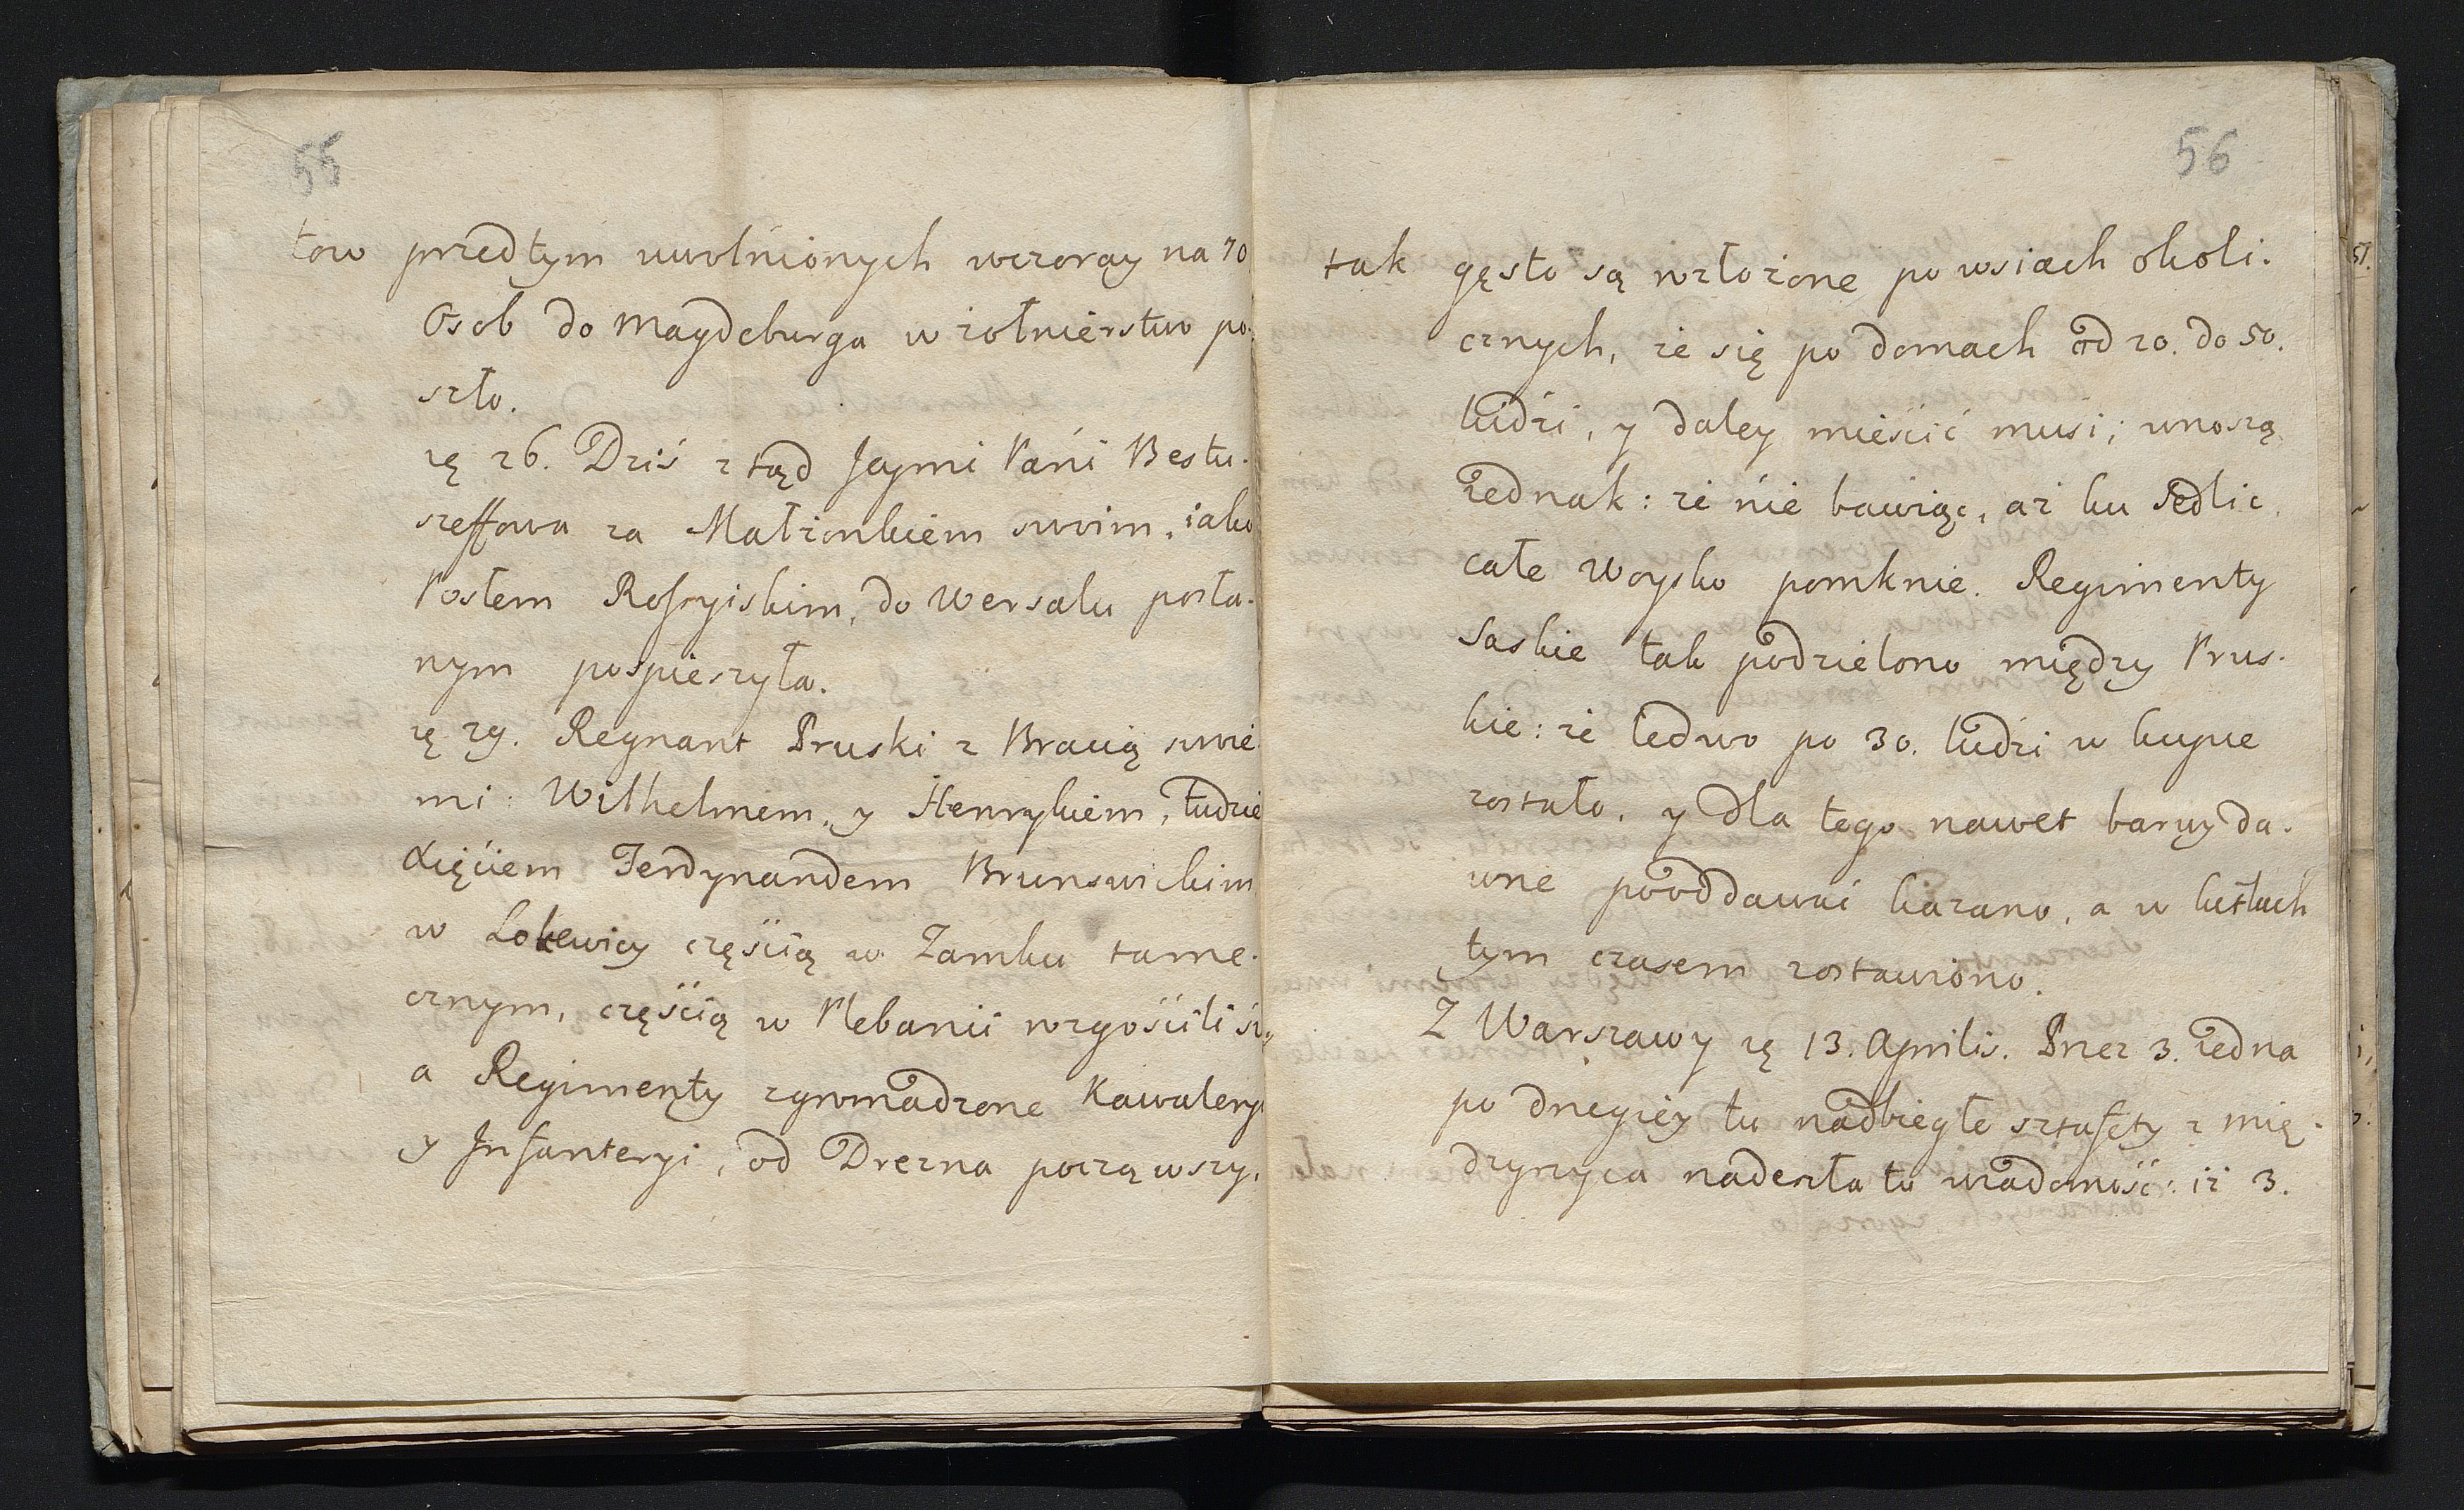 55
tow przedtym uwolnionych wczoray na 70
Osob do Magdeburga w żołnierstwo po-
szło.
zę 26. Dziś ztąd Jeymć Pani Bestu-
szeffowa za Małżonkiem swoim, iako
Posłem Rossyiskim, do Wersalu posła-
nym pospieszyła.
zę 29. Regnant Pruski z Bracią swie-
mi: Wilhelmem, y Henrykiem, tudzie
Xięciem Ferdynandem Brunswickim
w Lokewicy częścią w Zamku tame-
cznym, częścią w Plebanii wzgościli się,
a Regimenty zgromadzone Kawalery
y Infanteryi, od Drezna począwszy,
56
tak gęsto są wzłożone po wsiach okoli-
cznych, że się po domach od 20. do 50.
ludzi, y daley mieścić musi; wnoszą
iednak: że nie bawiąc, aż ku Sedlic
całe Woysko pomknie. Regimenty
Saskie tak podzielono między Prus-
kie: że ledwo po 30. ludzi w kupie
zostało, y dla tego nawet barwy da-
wne pooddawać kazano, a w kitlach
tym czasem zostawiono.
Z Warszawy zę 13. Aprilis. Przez 3. iedna
po drugiey tu nadbiegłe sztafety z Mię-
dzyrzyca nadeszła tu wiadomość: iż 3.
57.